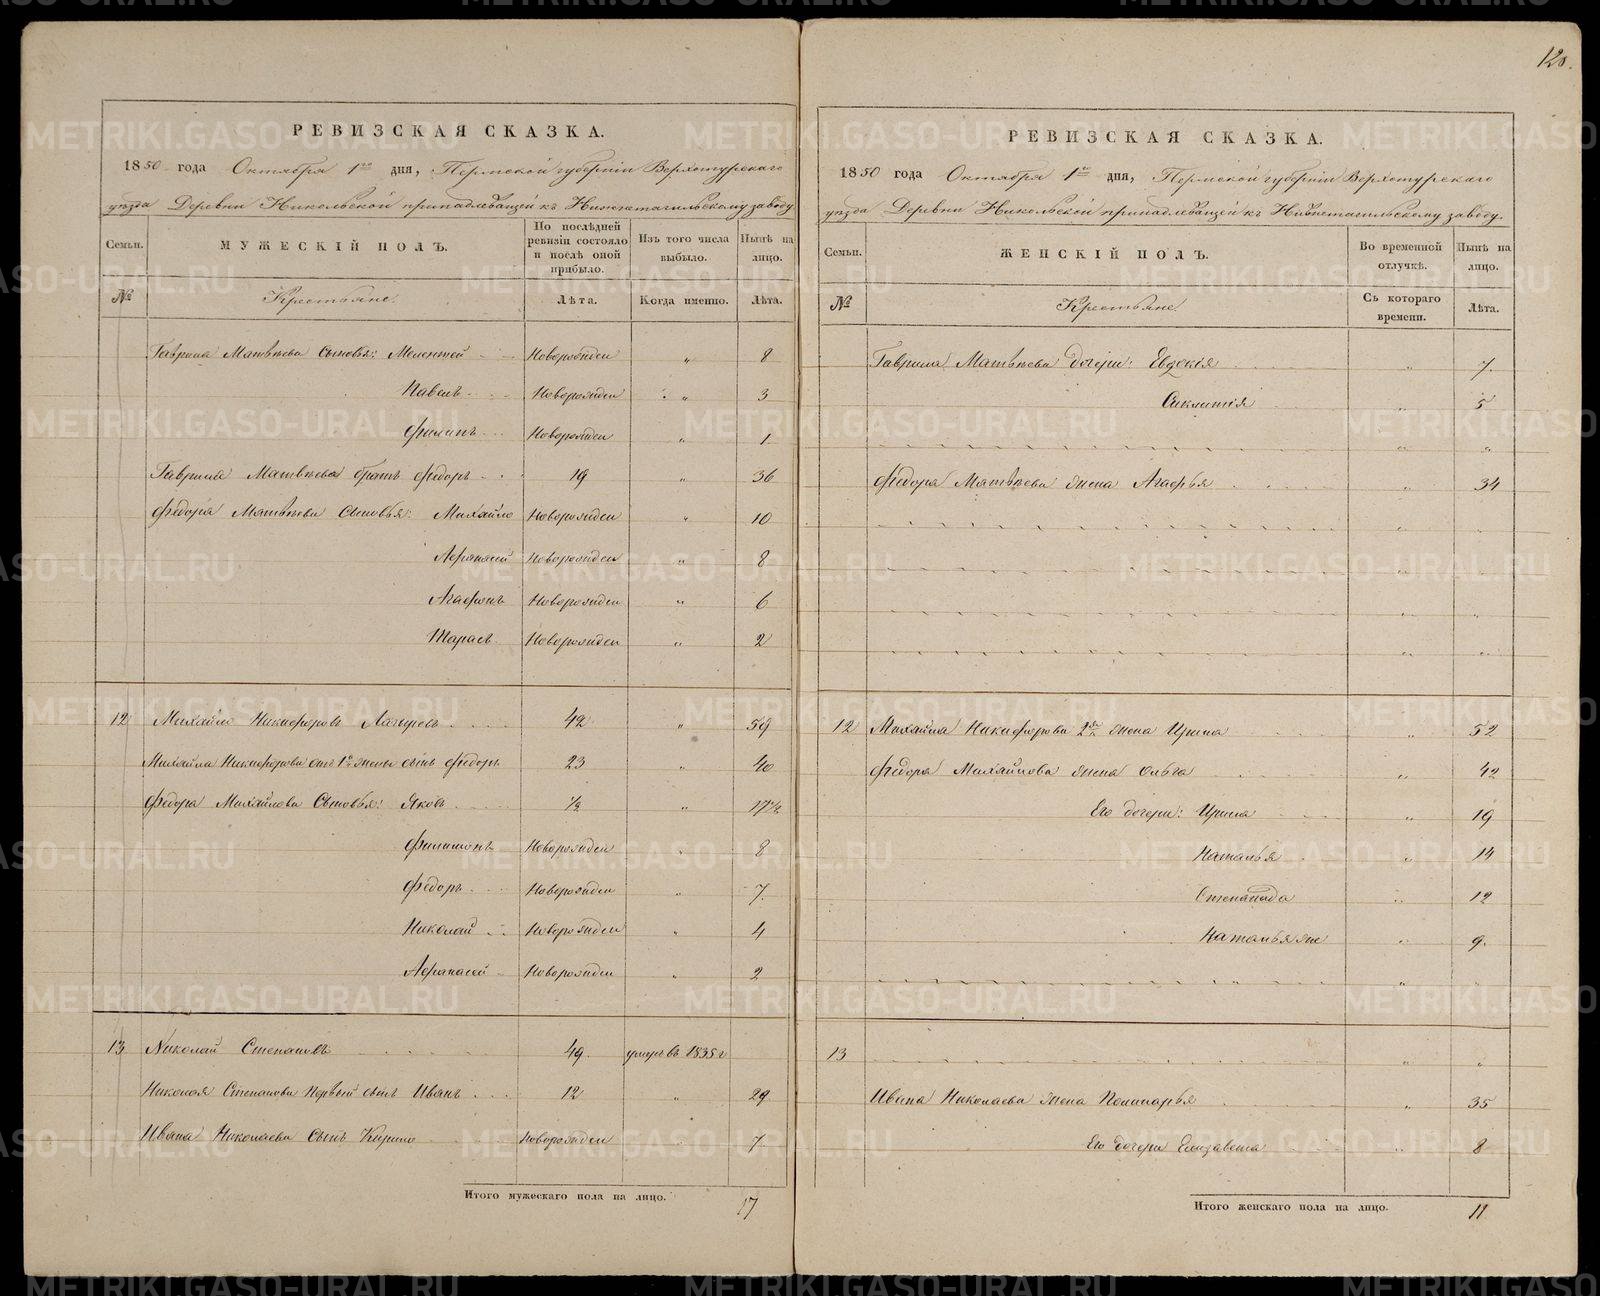 120.
РЕВИЗСКАЯ СКАЗКА.
1850 года Октября 1го дня, Пермской губерніи Верхотурскаго
уезда Деревни Никольской принадлежащей къ Нижнетагильскому заводу
Семьи.
МУЖЕСКІЙ ПОЛЪ.
По последней ревизіи состояло и послѣ оной прибыло.
Изъ того числа выбыло.
Нынѣ на лицо.
№
Крестьяне.
Лѣта.
Когда именно.
Лѣта.
Гаврила Матвѣева сыновья: Мелентей Новорожден „ 8
Павелъ Новорожден „ 3
Филипъ Новорожден „ 1
Гаврила Матвѣева братъ Федоръ 19 „ 36
Федора Матвѣева Сыновья: Михайло Новорожден „ 10
Афанасей Новорожден „ 8
Агафонъ Новорожден „ 6
Тарасъ Новорожден „ 2
12 Михайло Никифоровъ 42 „ 59
Михайла Никифорова отъ 1й жены сынъ Федоръ 23 „ 40
Федора Михайлова Сыновья: Яковъ 1/2 „ 17 1/2
Филимонъ Новорожден „ 8
Федоръ Новорожден „ 7
Николай Новорожден „ 4
Афанасей Новорожден „ 2
13 Николай Степановъ 49 умеръ въ 1835 г
Николая Степанова Первый сынъ Иванъ 12 „ 29
Ивана Николаева Сынъ Кирило Новорожден „ 7
Итого мужескаго пола на лицо. 17
РЕВИЗСКАЯ СКАЗКА.
1850 года Октября 1го дня, Пермской губерніи Верхотурскаго
уезда Деревни Никольской принадлежащей къ Нижнетагильскому заводу.
Семьи.
ЖЕНСКІЙ ПОЛЪ.
Во временной отлучкѣ.
Нынѣ на лицо.
№
Крестьяне.
Съ котораго времени.
Лѣта.
Гаврила Матвѣева дочери: Евдокія „ 7
5
Федора Матвѣева жена Агафья „ 34
12 Михайла Никифорова 2я жена Ирина „ 52
Федора Михайлова жена Ольга „ 42
Его дочери: Ирина „ 19
Наталья „ 14
Степанида „ 12
Наталья же „ 9
13
Ивана Николаева жена „ 35
Его дочери Елизавета „ 8
Итого женскаго пола на лицо. 11
METRIKI.GASO-URAL.RU